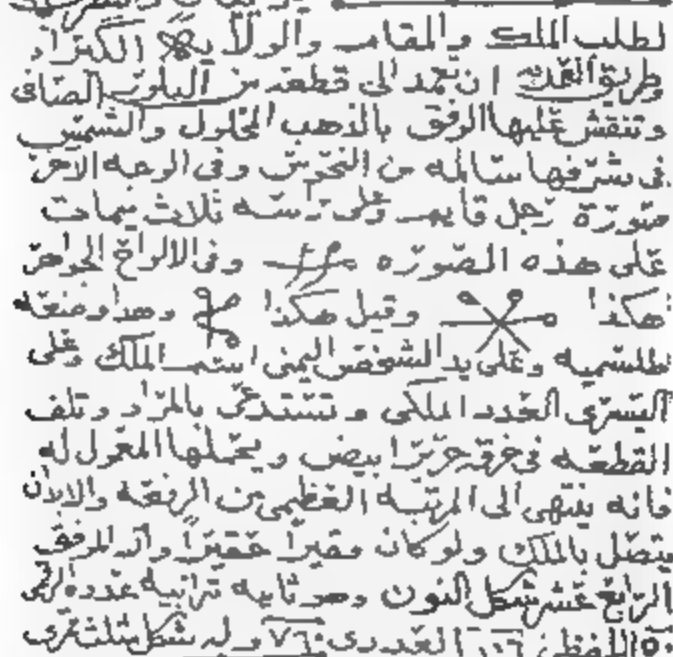 لطلب الملك والمقام والولايه الكبراد
وطريق العمل ان تعمد الى قطعه من البلور الصافى
وتنقش عليها الوفق بالذهب المحلول والشمس
فى شرفها سالمه من النحوس وفى الوجه الآخر
صورة رجل قايم وعلى رأسه ثلاث نجمات
على هذه الصوره وفى الالواح الجواهر
هكذا وقيل هكذا وهذا وضعه
طلسميه وعلى يد الشخص اليمنى استم الملك وعلى
اليسرى العدد الملكى وتستدعى بالمراد وتلف
القطعه فى خرقة حرير ابيض ويحملها المعمول له
فانه ينتهى الى المرتبه العظمى من الرفعه والابد ان
يتصل بالملك ولو كان فقيراً حقيراً والمرفق
الرابع عشر شكل النون وهو ثابه ترابيه عدده الرقمى
٥٠ اللفظى ١٠٦ العددى ٧٦٠ وله شكل مثلث ترى